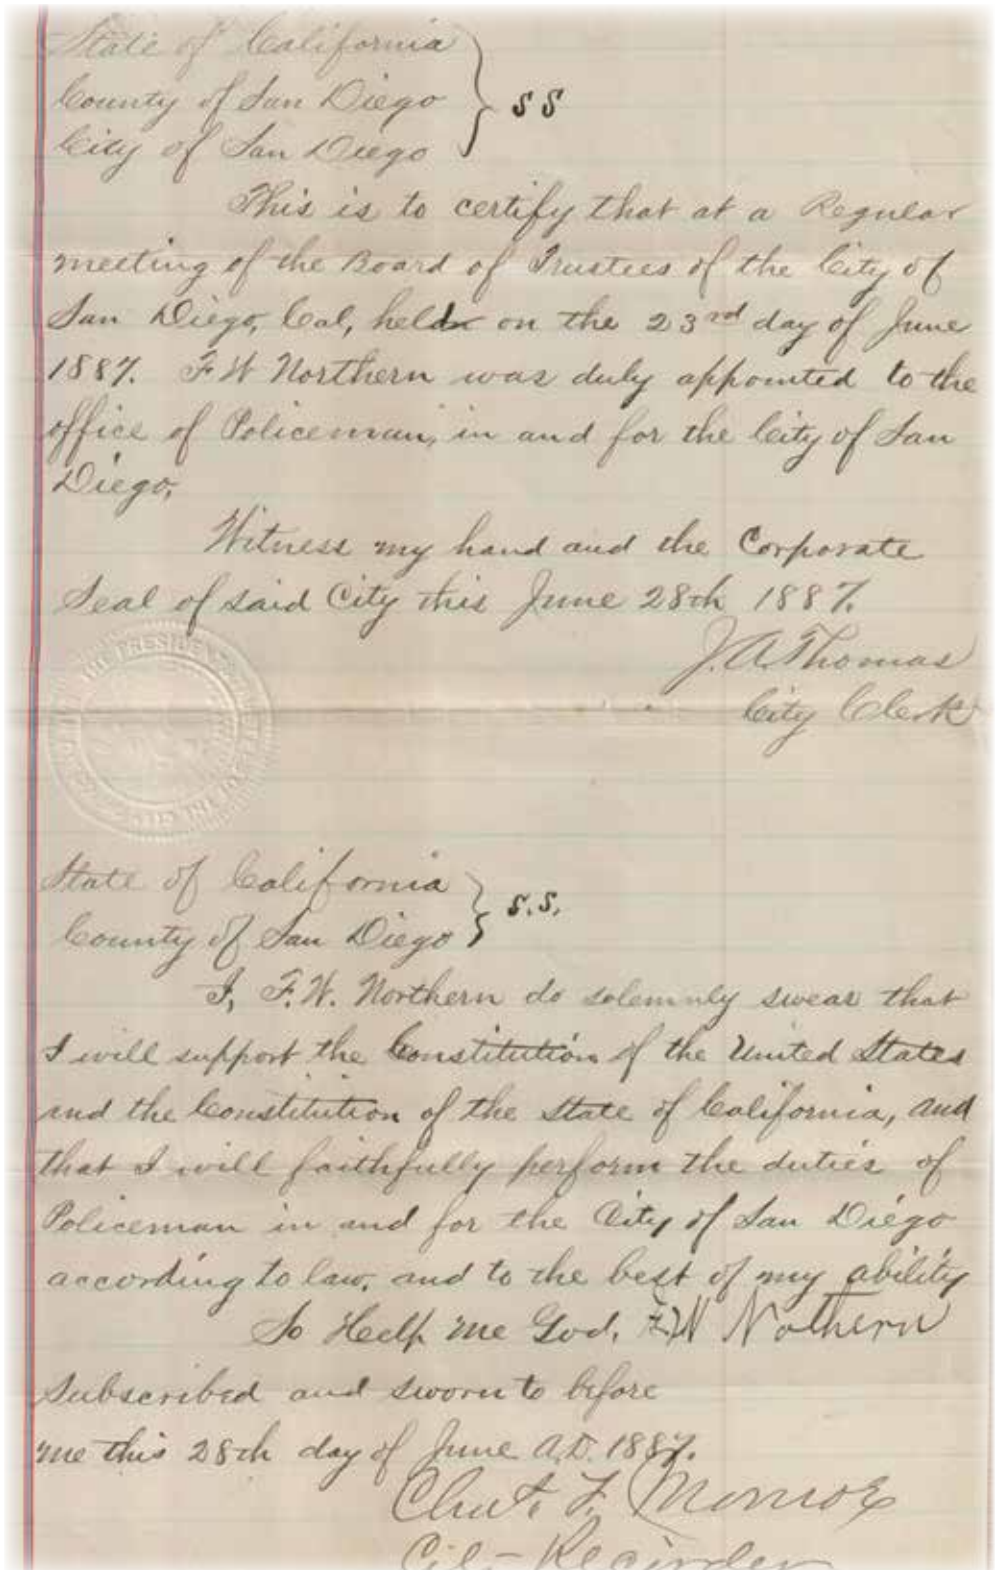 State of California
County of San Diego } SS
City of San Diego
This is to certify that at a Regular
meeting of the Board of Trustees of the City of
San Diego, Cal, held on the 23rd day of June
1887. F W Northern was duly appointed to the
office of Policeman, in and for the City of San
Diego.
Witness my hand and the Corporate
Seal of said City this June 28th 1887.
J. A. Thomas
City Clerk
THE PRESIDENT
State of California
County of San Diego } S.S.
I, F. W. Northern do solemnly swear that
I will support the Constitution of the United States
and the Constitution of the State of California, and
that I will faithfully perform the duties of
Policeman in and for the City of San Diego
according to law, and to the best of my ability
So Help me God. F W Nothern
Subscribed and sworn to before
me this 28th day of June A.D. 1887.
F. Monroe
City Recorder